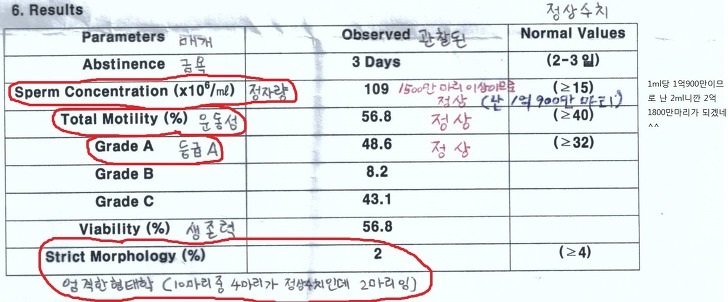 6. Results
정상수치
Parameters 매개 Observed 관찰된 Normal Values
Abstinence 금욕 3 Days (2-3일)
Sperm Concentration (x10⁶/㎖) 정자량 109 1500만 마리 이상이므로 정상 (난 1억 900만 마리) (≥15)
1ml당 1억900만이므
로 난 2ml니깐 2억
1800만마리가 되겠네
^^
Total Motility (%) 운동성 56.8 정상 (≥40)
Grade A 등급A 48.6 정상 (≥32)
Grade B 8.2
Grade C 43.1
Viability (%) 생존력 56.8
Strict Morphology (%) 2 (≥4)
엄격한형태학 (10마리중 4마리가 정상수치인데 2마리임)